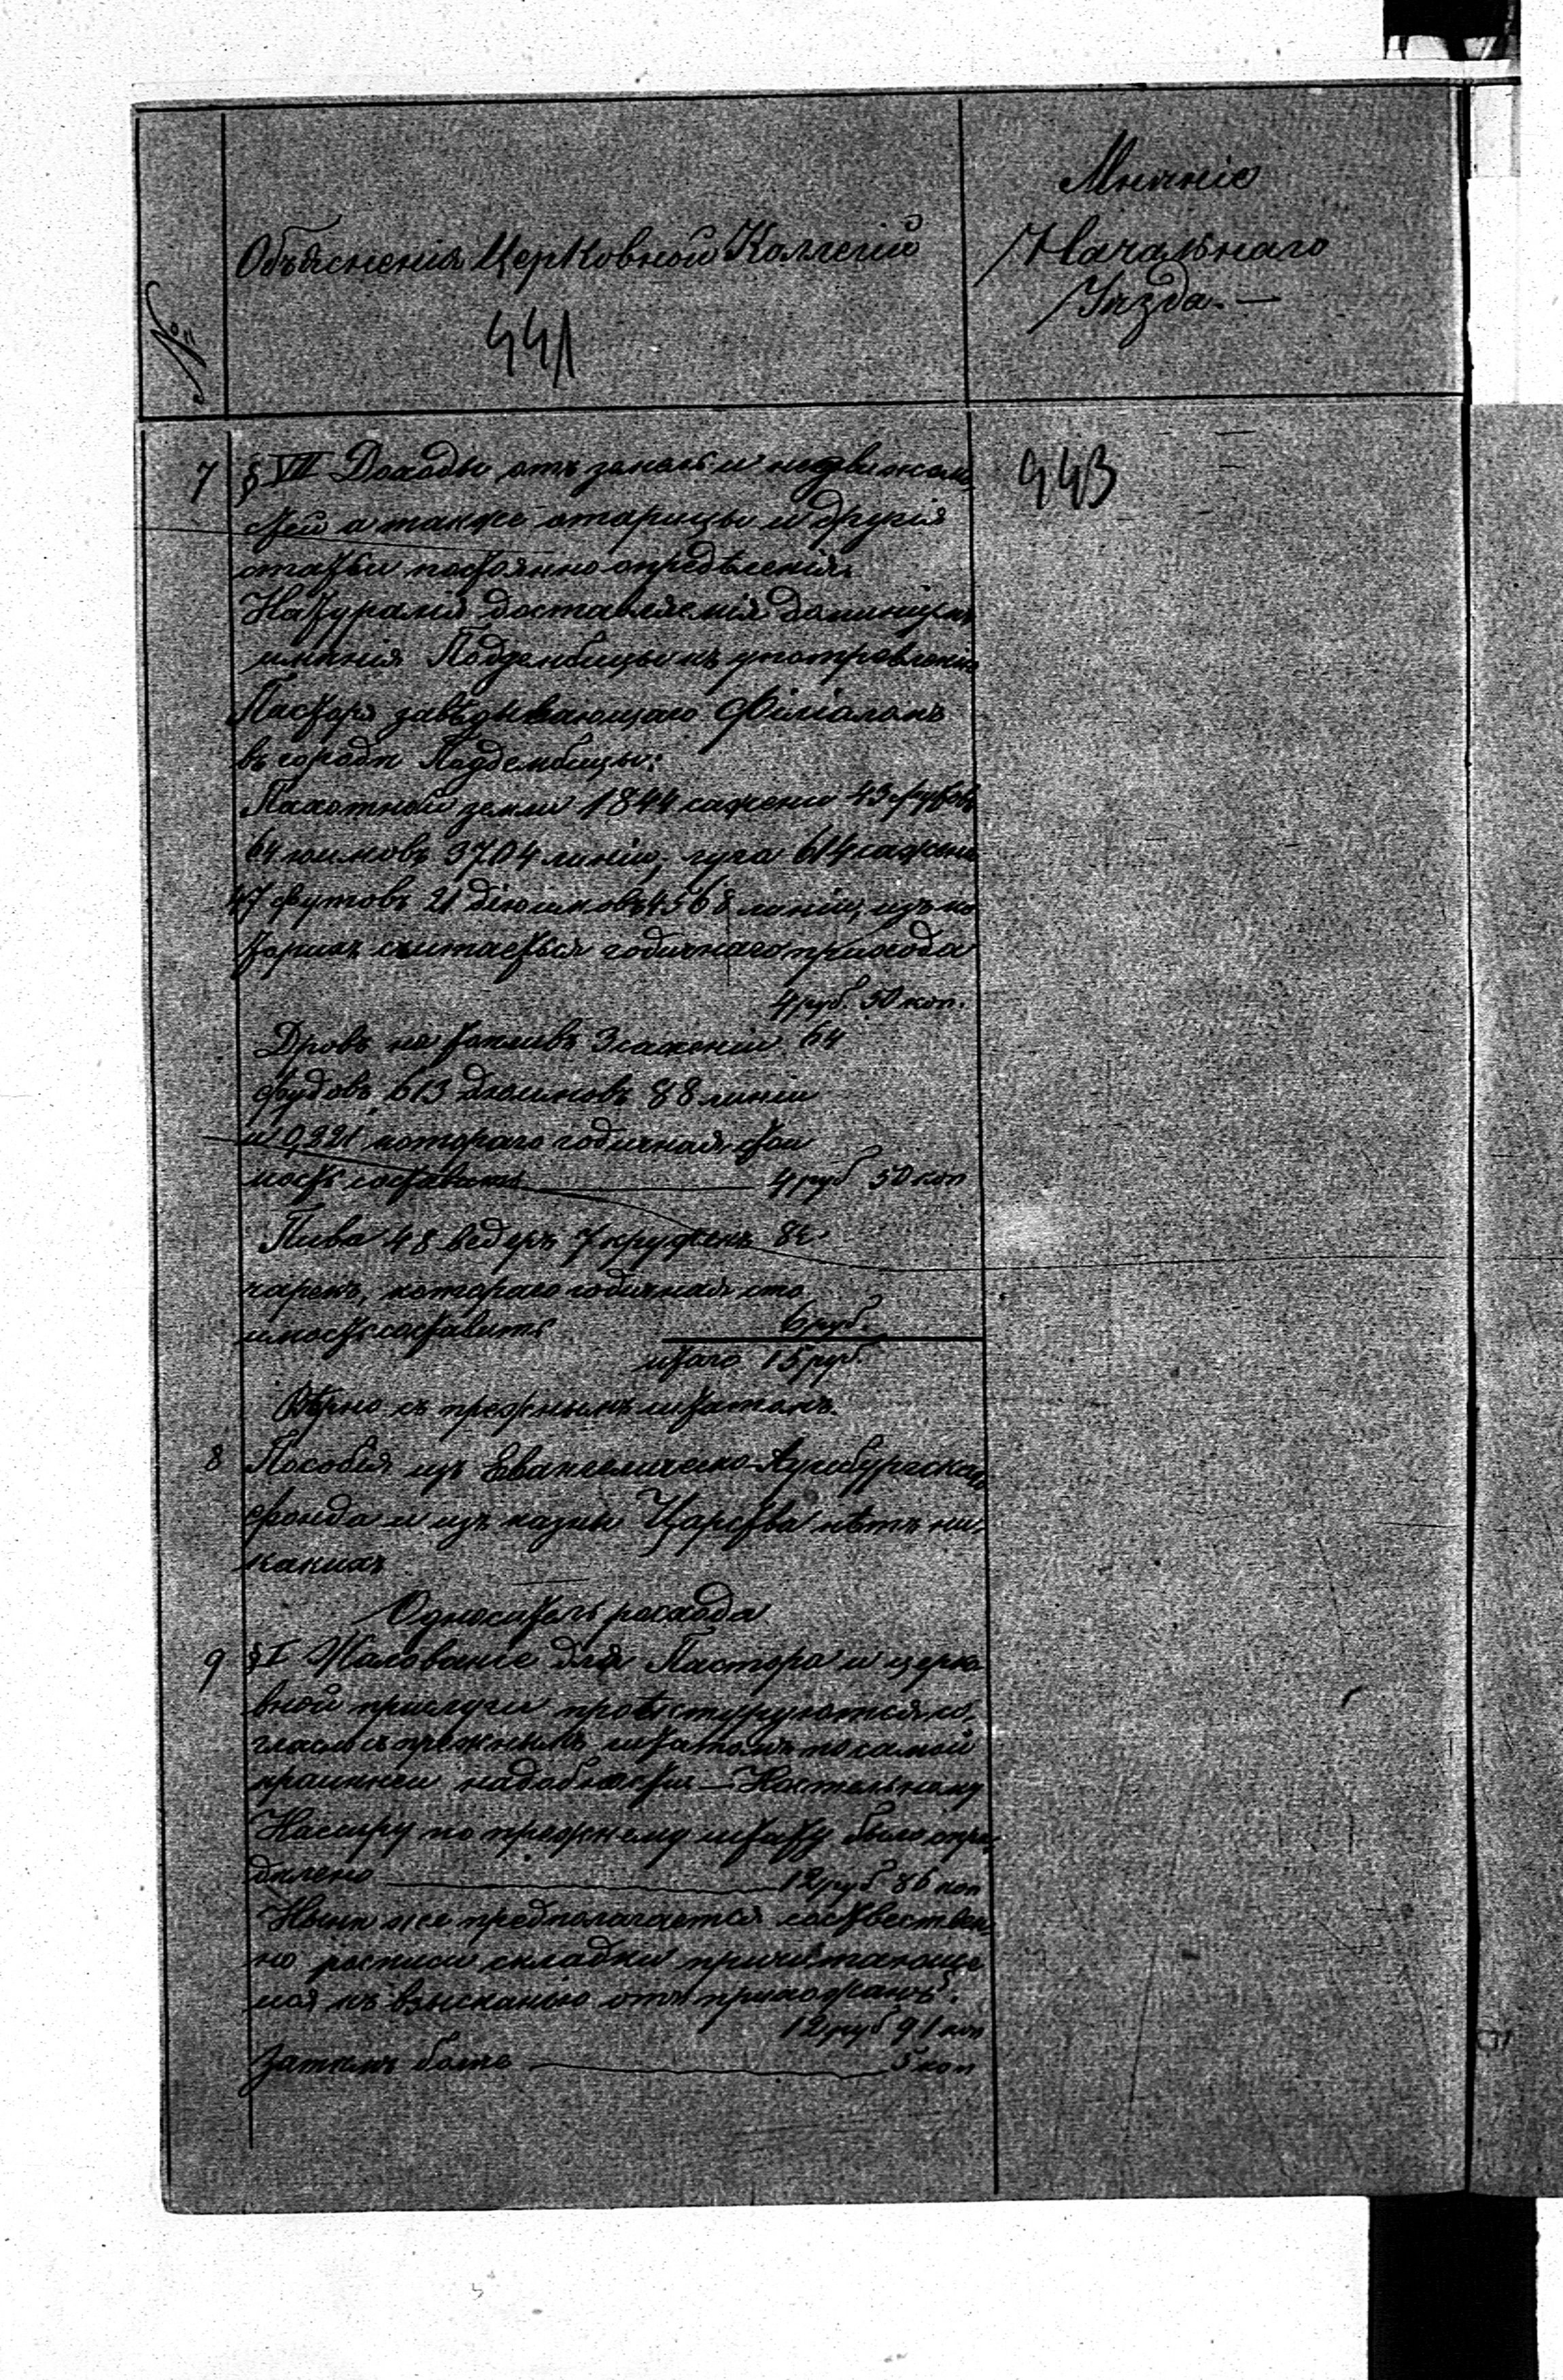 №
Объясненія Церковной Коллегіи
441
Мнѣніе
Начальнаго
Уѣзда. —
443
7 § VII Доходы отъ земель и недвижимо
стей а также and другія
статьи постоянно опредѣленія.
Натуралія доставляемія доминіумъ
имѣнія Поддембицы къ употребленію
Пастора завѣдывающаго Филіаломъ
въ городѣ Поддембицы:
Пахотной земли 1844 саженъ 43 футовъ
64 юимовъ 3704 линіи, луга 614 сажень
47 футовъ 21 дюимовъ 4568 линіи, изъ ко
торихъ считаеться годичнаго прихода
4 руб. 50 коп.
Дровъ на топливъ 3 саженіи 64
фудовъ 613 дюимовъ 88 линіи
и 0,321 котораго годичная стои
мость составитъ 4 руб 50 коп
Пива 48 ведеръ 7 кружекъ 8
чарекъ, котораго годичная сто
имость составитъ 6 руб.
итого 15 руб.
Вѣрно съ прежнымъ штатомъ.
8 Пособія изъ Евангелическо-Аугсбургскаго
фонда и изъ казны Царства нѣтъ ни
какихъ
Односитель расхода
9 § I Жалованіе для Пастора и церко
вной прислуги проэстуруются со
гласно съ прежнымъ штатомъ по самой
краинней надобности — Костельному
Кассиру по прежнему штату было опре
дѣлено 12 руб 86 коп
Нынѣ же предполагается соотвествен
но росписи складки причитающе
ися къ взысканію отъ прихожанъ.
12 руб 91 коп
затемъ болѣе 5 коп